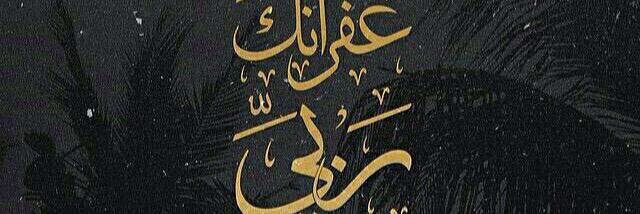 غفرانك
ربي